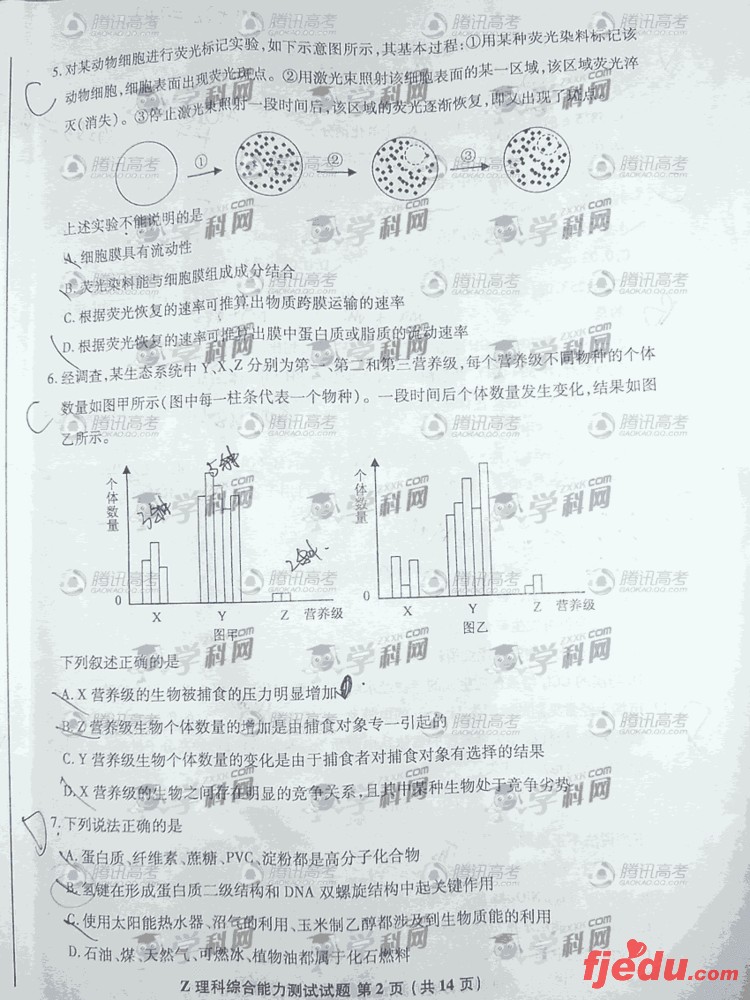 5.对某动物细胞进行荧光标记实验,如下示意图所示,其基本过程:①用某种荧光染料标记该
动物细胞,细胞表面出现荧光斑点。②用激光束照射该细胞表面的某一区域,该区域荧光淬
灭(消失)。③停止激光束照射一段时间后,该区域的荧光逐渐恢复,即又出现了斑点。
C
① ② ③
上述实验不能说明的是
A.细胞膜具有流动性
B.荧光染料能与细胞膜组成成分结合
C.根据荧光恢复的速率可推算出物质跨膜运输的速率
D.根据荧光恢复的速率可推算出膜中蛋白质或脂质的流动速率
6.经调查,某生态系统中Y、X、Z分别为第一、第二和第三营养级,每个营养级不同物种的个体
数量如图甲所示(图中每一柱条代表一个物种)。一段时间后个体数量发生变化,结果如图
乙所示。
C
个体数量
0
X Y Z 营养级
图甲
5种
2种
个体数量
0
X Y Z 营养级
图乙
下列叙述正确的是
A.X营养级的生物被捕食的压力明显增加
B.Z营养级生物个体数量的增加是由捕食对象专一引起的
C.Y营养级生物个体数量的变化是由于捕食者对捕食对象有选择的结果
D.X营养级的生物之间存在明显的竞争关系,且其中某种生物处于竞争劣势
7.下列说法正确的是
D
A.蛋白质、纤维素、蔗糖、PVC、淀粉都是高分子化合物
B.氢键在形成蛋白质二级结构和DNA双螺旋结构中起关键作用
C.使用太阳能热水器、沼气的利用、玉米制乙醇都涉及到生物质能的利用
D.石油、煤、天然气、可燃冰、植物油都属于化石燃料
Z 理科综合能力测试试题 第2页(共14页)
腾讯高考
GAOKAO.QQ.COM
学科网
ZXXK.COM
fjedu.com